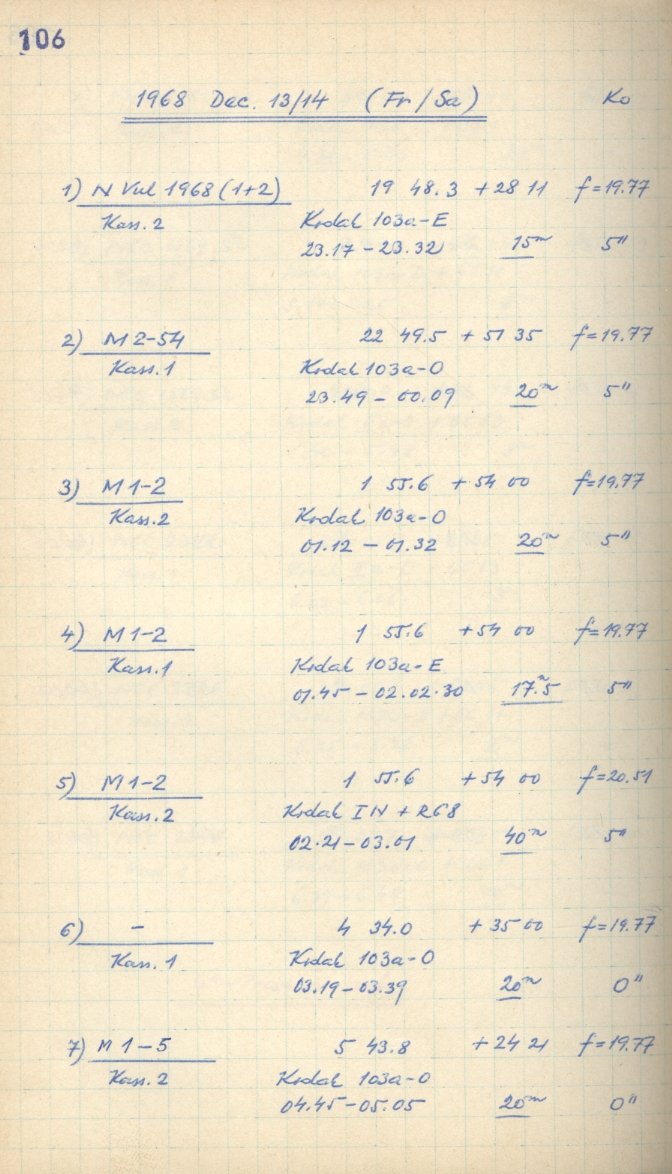 106
1968 Dec. 13/14 (Fr/Sa) Ko
1) N Vul 1968 (1+2) 19 48.3 +28 11 f=19.77
Kass. 2 Kodak 103a-E
23.17 - 23.32 15m 5"
2) M 2-54 22 49.5 +51 35 f=19.77
Kass. 1 Kodak 103a-O
23.49 - 00.09 20m 5"
3) M 1-2 1 55.6 +54 00 f=19.77
Kass. 2 Kodak 103a-O
01.12 - 01.32 20m 5"
4) M 1-2 1 55.6 +54 00 f=19.77
Kass. 1 Kodak 103a-E
01.45 - 02.02.30 17m.5 5"
5) M 1-2 1 55.6 +54 00 f=20.51
Kass. 2 Kodak IN + RG8
02.21 - 03.01 40m 5"
6) - 4 34.0 +35 00 f=19.77
Kass. 1 Kodak 103a-O
03.19 - 03.39 20m 0"
7) M 1-5 5 43.8 +24 21 f=19.77
Kass. 2 Kodak 103a-O
04.45 - 05.05 20m 0"